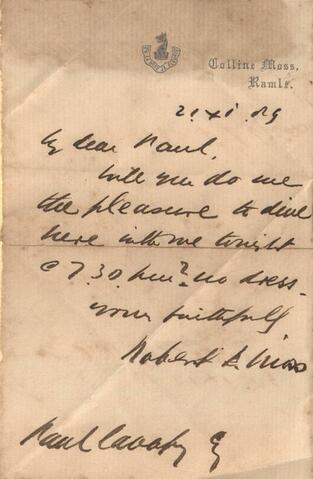 Colline Moss,
Ramle.
21 XI 89
My dear Paul,
Will you do me
the pleasure to dine
here with me tonight
@ 7.30 p.m? no dress.
yours faithfully
Robert J. Moss
Paul Cavafy Esq